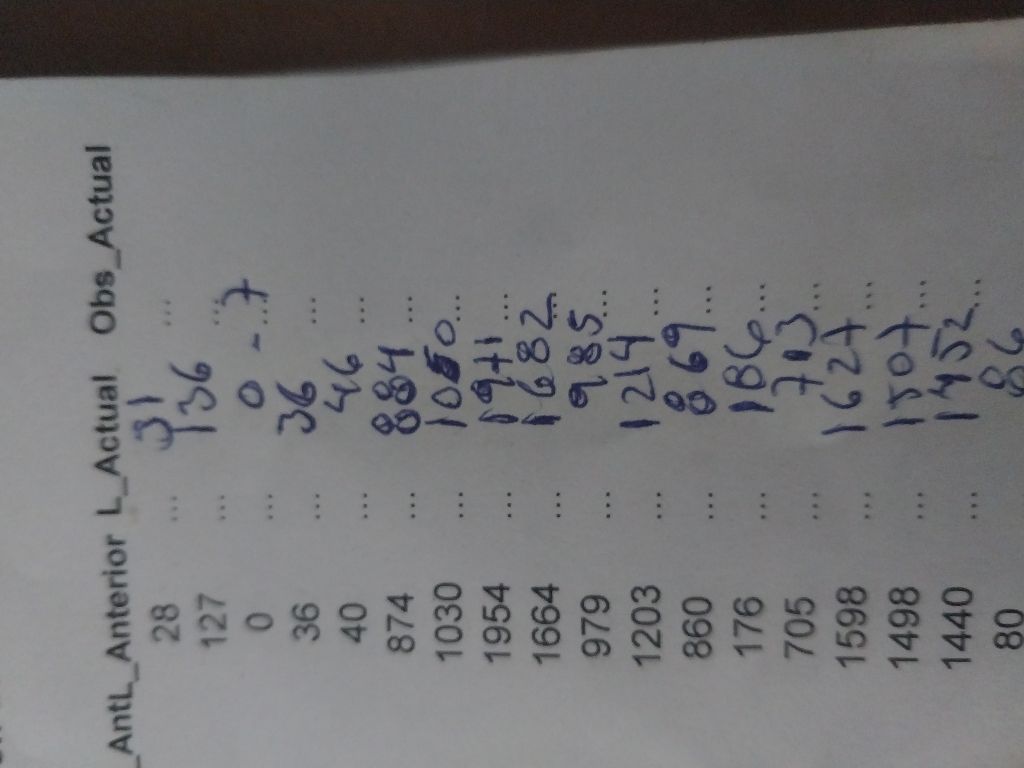 _AntL_Anterior L_Actual Obs_Actual
28 ... 31 ...
127 ... 136 ...
0 ... 0 - 7 ...
36 ... 36 ...
40 ... 46 ...
874 ... 884 ...
1030 ... 1050 ...
1954 ... 1971 ...
1664 ... 1682 ...
979 ... 985 ...
1203 ... 1214 ...
860 ... 869 ...
176 ... 186 ...
705 ... 713 ...
1598 ... 1627 ...
1498 ... 1507 ...
1440 ... 1452 ...
80 86